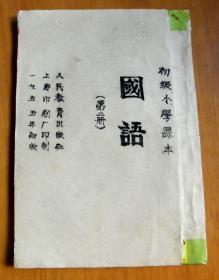 初級小學課本
國語
(第二册)
人民教育出版社
上海印刷厂印刷
一九五五年初版